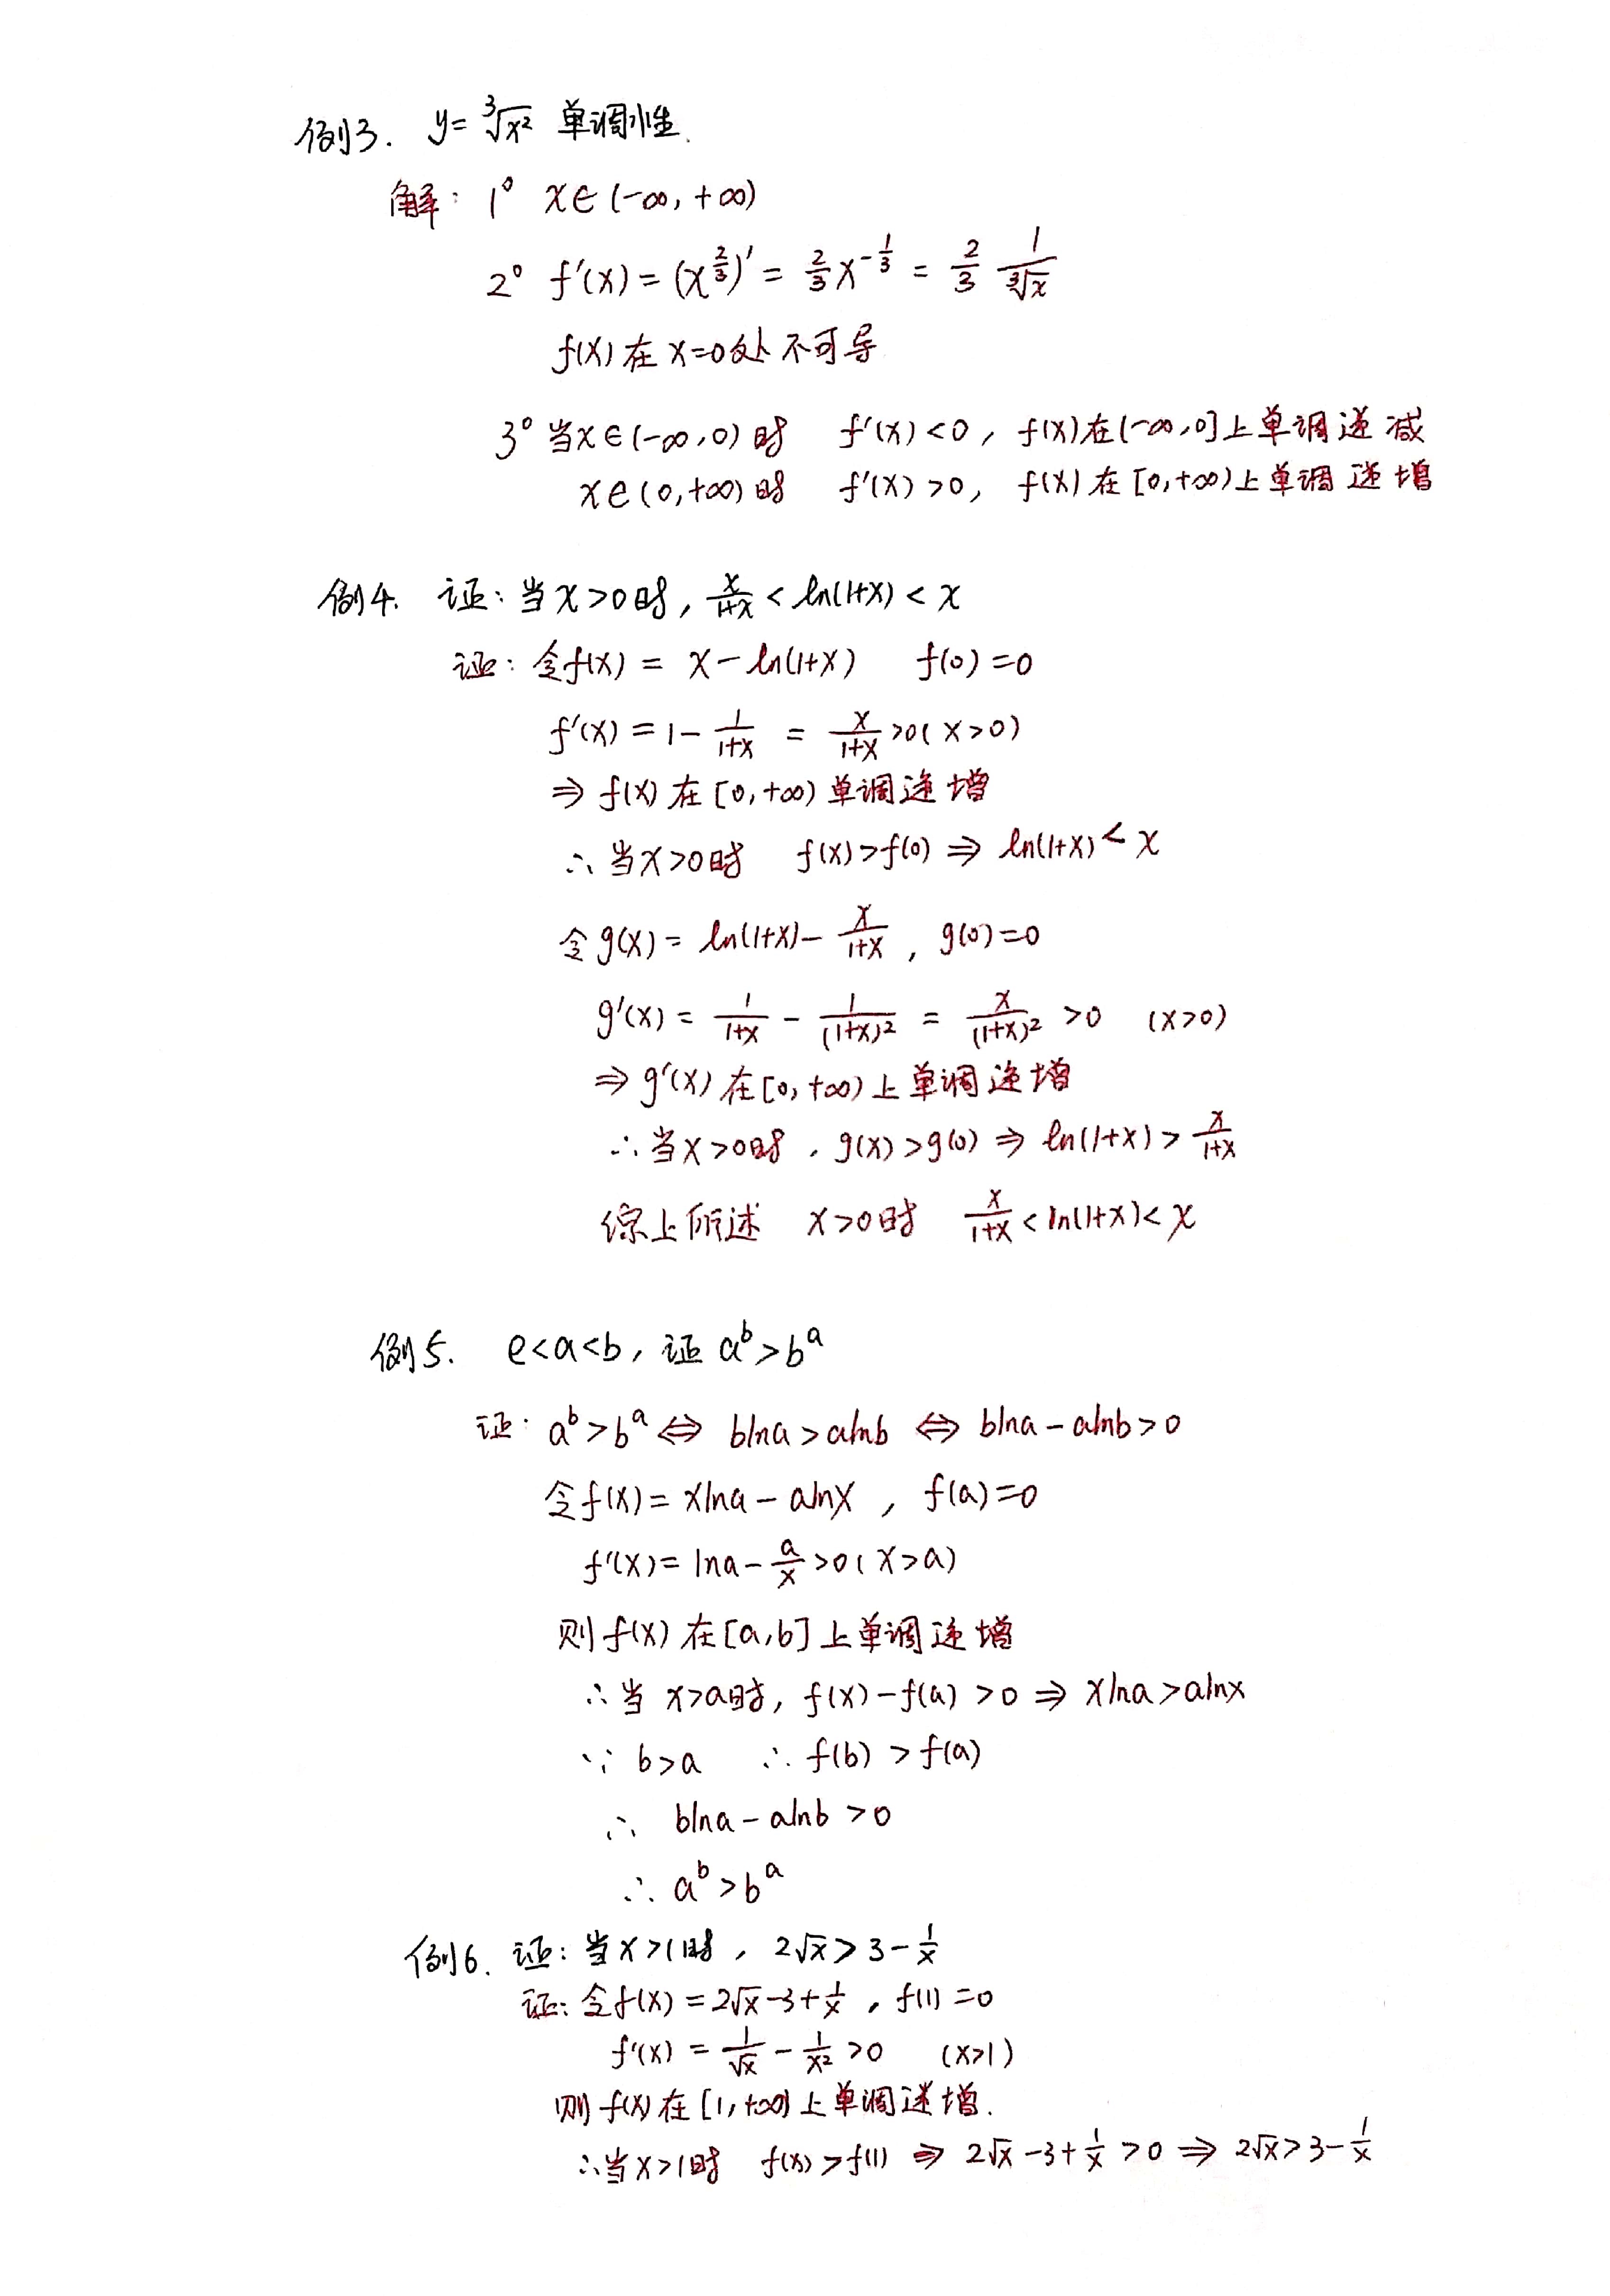 例3. y=∛x² 单调性.
解: 1° x∈(-∞,+∞)
2° f'(x)=(x^{2/3})'=2/3 x^{-1/3}=2/3 1/∛x
f(x)在x=0处不可导
3° 当x∈(-∞,0)时 f'(x)<0, f(x)在(-∞,0]上单调递减
x∈(0,+∞)时 f'(x)>0, f(x)在[0,+∞)上单调递增
例4. 证:当x>0时, x/(1+x)<ln(1+x)<x
证:令f(x)=x-ln(1+x) f(0)=0
f'(x)=1-1/(1+x)=x/(1+x)>0(x>0)
⇒f(x)在[0,+∞)单调递增
∴当x>0时 f(x)>f(0)⇒ln(1+x)<x
令g(x)=ln(1+x)-x/(1+x), g(0)=0
g'(x)=1/(1+x)-1/(1+x)²=x/(1+x)²>0 (x>0)
⇒g'(x)在[0,+∞)上单调递增
∴当x>0时,g(x)>g(0)⇒ln(1+x)>x/(1+x)
综上所述 x>0时 x/(1+x)<ln(1+x)<x
例5. e<a<b, 证 a^b>b^a
证:a^b>b^a⇔blna>alnb⇔blna-alnb>0
令f(x)=xlna-alnx, f(a)=0
f'(x)=lna-a/x>0(x>a)
则f(x)在[a,b]上单调递增
∴当x>a时, f(x)-f(a)>0⇒xlna>alnx
∵b>a ∴f(b)>f(a)
∴ blna-alnb>0
∴a^b>b^a
例6. 证:当x>1时, 2√x>3-1/x
证:令f(x)=2√x-3+1/x, f(1)=0
f'(x)=1/√x-1/x²>0 (x>1)
则f(x)在[1,+∞)上单调递增.
∴当x>1时 f(x)>f(1)⇒2√x-3+1/x>0⇒2√x>3-1/x